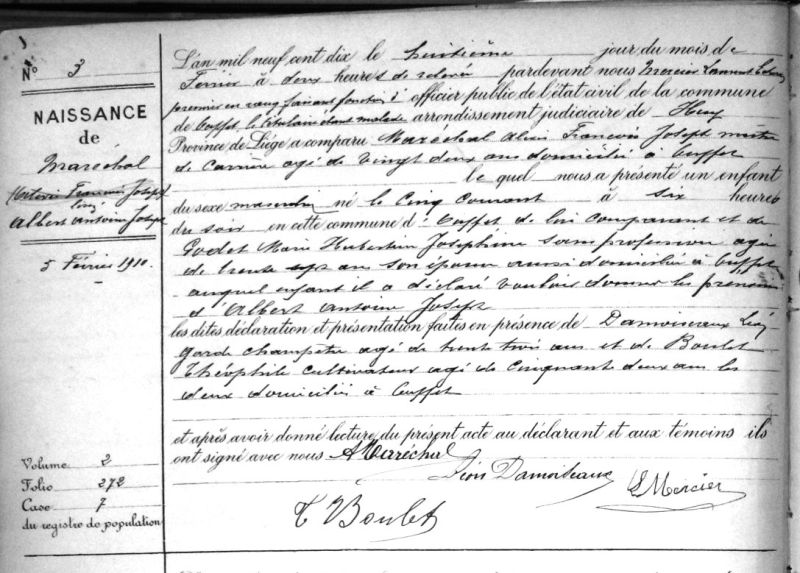 N° 3
NAISSANCE
de
Maréchal
Joseph
Albert Antoine Joseph
5 Février 1910
Volume 2
Folio 272
Case 7
du registre de population
L'an mil neuf cent dix le huitième jour du mois de
Février à deux heures de relevée pardevant nous Mercier Laurent
premier en rang faisant fonction d' officier public de l'état civil de la commune
de Ouffet, le titulaire étant malade arrondissement judiciaire de Huy
Province de Liége a comparu Maréchal François Joseph maître
de carrière agé de vingt deux ans domicilié à Ouffet
le quel nous a présenté un enfant
du sexe masculin né le cinq courant à six heures
du soir en cette commune d'Ouffet de lui comparant et de
Godet Marie Hubertine Joséphine sans profession agée
de trente ans son épouse aussi domiciliée à Ouffet
auquel enfant il a déclaré vouloir donner les prénoms
d'Albert Antoine Joseph
les dites déclaration et présentation faites en présence de Damoiseaux Léon
garde champêtre agé de trente trois ans et de Boulet
Théophile cultivateur agé de cinquante deux ans les
deux domiciliés à Ouffet
et après avoir donné lecture du présent acte au déclarant et aux témoins ils
ont signé avec nous A Maréchal
Léon Damoiseaux
L Mercier
T Boulet